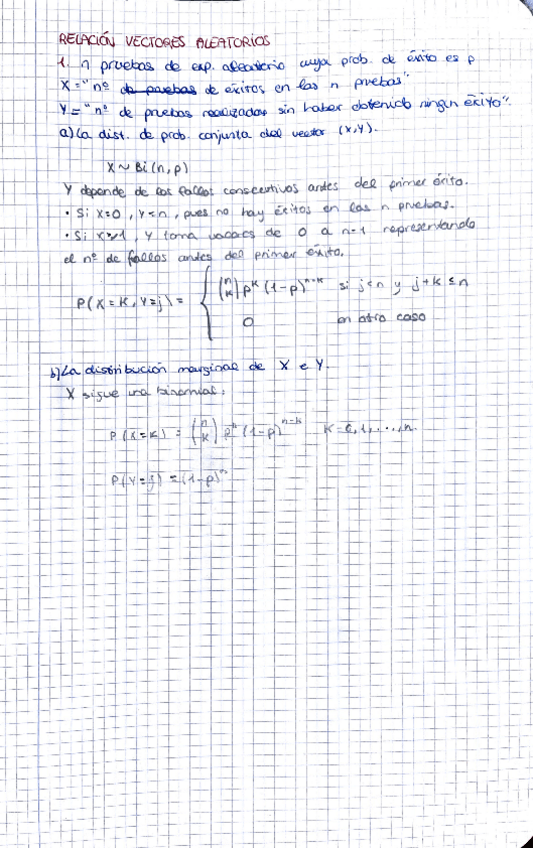 RELACIÓN VECTORES ALEATORIOS
1. n pruebas de exp. aleatorio cuya prob. de éxito es p
X = "nº de pruebas de éxitos en las n pruebas"
Y = "nº de pruebas realizadas sin haber obtenido ningun éxito".
a) La dist. de prob. conjunta del vector (X,Y).
X ~ Bi(n,p)
Y depende de los fallos consecutivos antes del primer éxito.
• Si X=0, Y=n, pues no hay éxitos en las n pruebas.
• Si X≥1, Y toma valores de 0 a n-1 representando
el nº de fallos antes del primer éxito.
P(X=k, Y=j) = { (n k) p^k (1-p)^{n-k} si j<n y j+k≤n
0 en otro caso
b) La distribución marginal de X e Y.
X sigue una binomial:
P(X=k) = (n k) p^k (1-p)^{n-k} K=0,1,...,n.
P(Y=j) = (1-p)^n